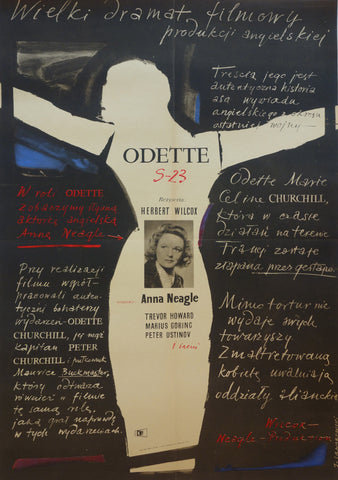 Wielki dramat filmowy
produkcji angielskiej
Treścią jego jest
autentyczna historia
asa wywiadu
angielskiego z okresu
ostatniej wojny —
ODETTE
S-23
Reżyseria
HERBERT WILCOX
W roli ODETTE
zobaczymy słynną
aktorkę angielską
Anną Neagle
Odette Marie
Celine CHURCHILL,
która w czasie
działań na terenie
Francji zostaje
złapana przez gestapo.
Przy realizacji
filmu współ-
pracowali auten-
tyczni bohaterzy
wydarzeń - ODETTE
CHURCHILL, jej mąż
kapitan PETER
CHURCHILL i pułkownik
Maurice Buckmaster,
który odtwarza
również w filmie
tę samą rolę,
jaką grał naprawdę
w tych wydarzeniach.
Anna Neagle
TREVOR HOWARD
MARIUS GORING
PETER USTINOV
i inni
Mimo tortur nie
wydaje swych
towarzyszy
Zmaltretowaną
kobietę uwalniają
oddziały alianckie
Wilcox —
Neagle - Production